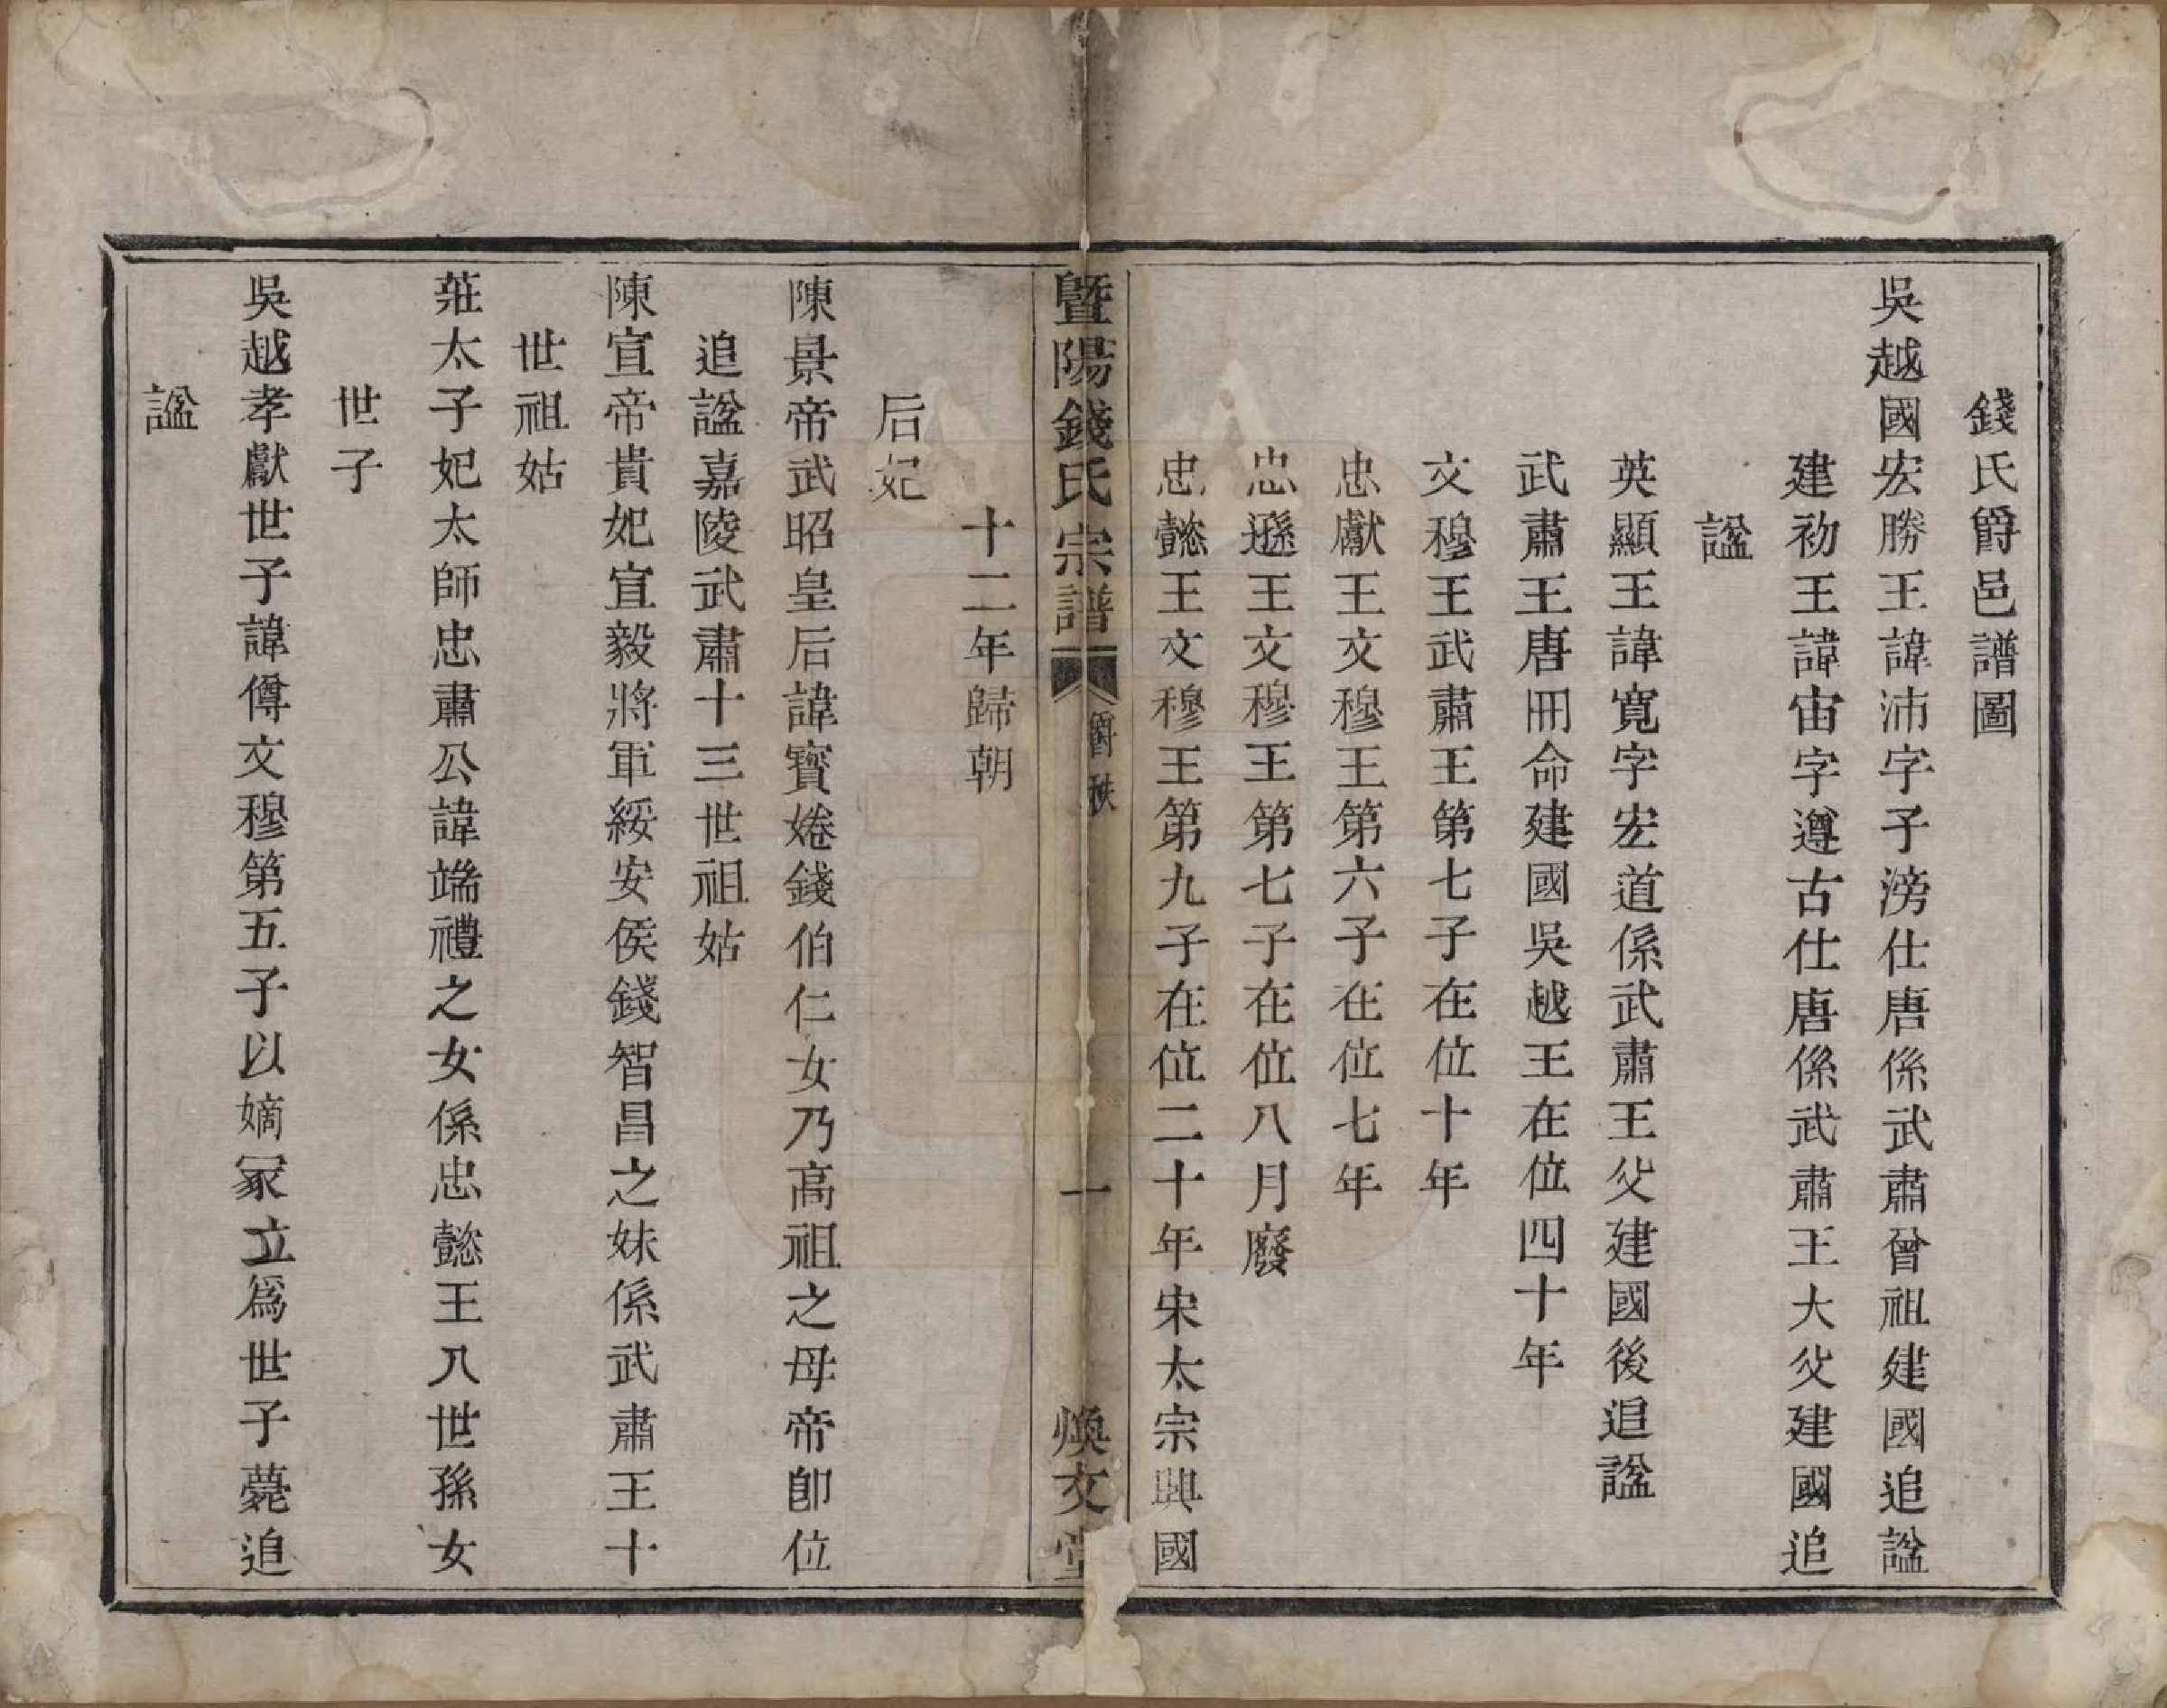 錢氏爵邑譜圖
吳越國宏勝王諱沛字子滂仕唐係武肅曾祖建國追諡
建初王諱宙字遵古仕唐係武肅王大父建國追
諡
英顯王諱寬字宏道係武肅王父建國後追諡
武肅王唐冊命建國吳越王在位四十年
文穆王武肅王第七子在位十年
忠獻王文穆王第六子在位七年
忠遜王文穆王第七子在位八月廢
忠懿王文穆王第九子在位二十年宋太宗興國
暨陽錢氏宗譜
一
煥文堂
十二年歸朝
后妃
陳景帝武昭皇后諱寶婘錢伯仁女乃高祖之母帝卽位
追諡嘉陵武肅十三世祖姑
陳宣帝貴妃宣毅將軍綏安侯錢智昌之妹係武肅王十
世祖姑
莊太子妃太師忠肅公諱端禮之女係忠懿王八世孫女
世子
吳越孝獻世子諱僔文穆第五子以嫡冢立爲世子薨追
諡